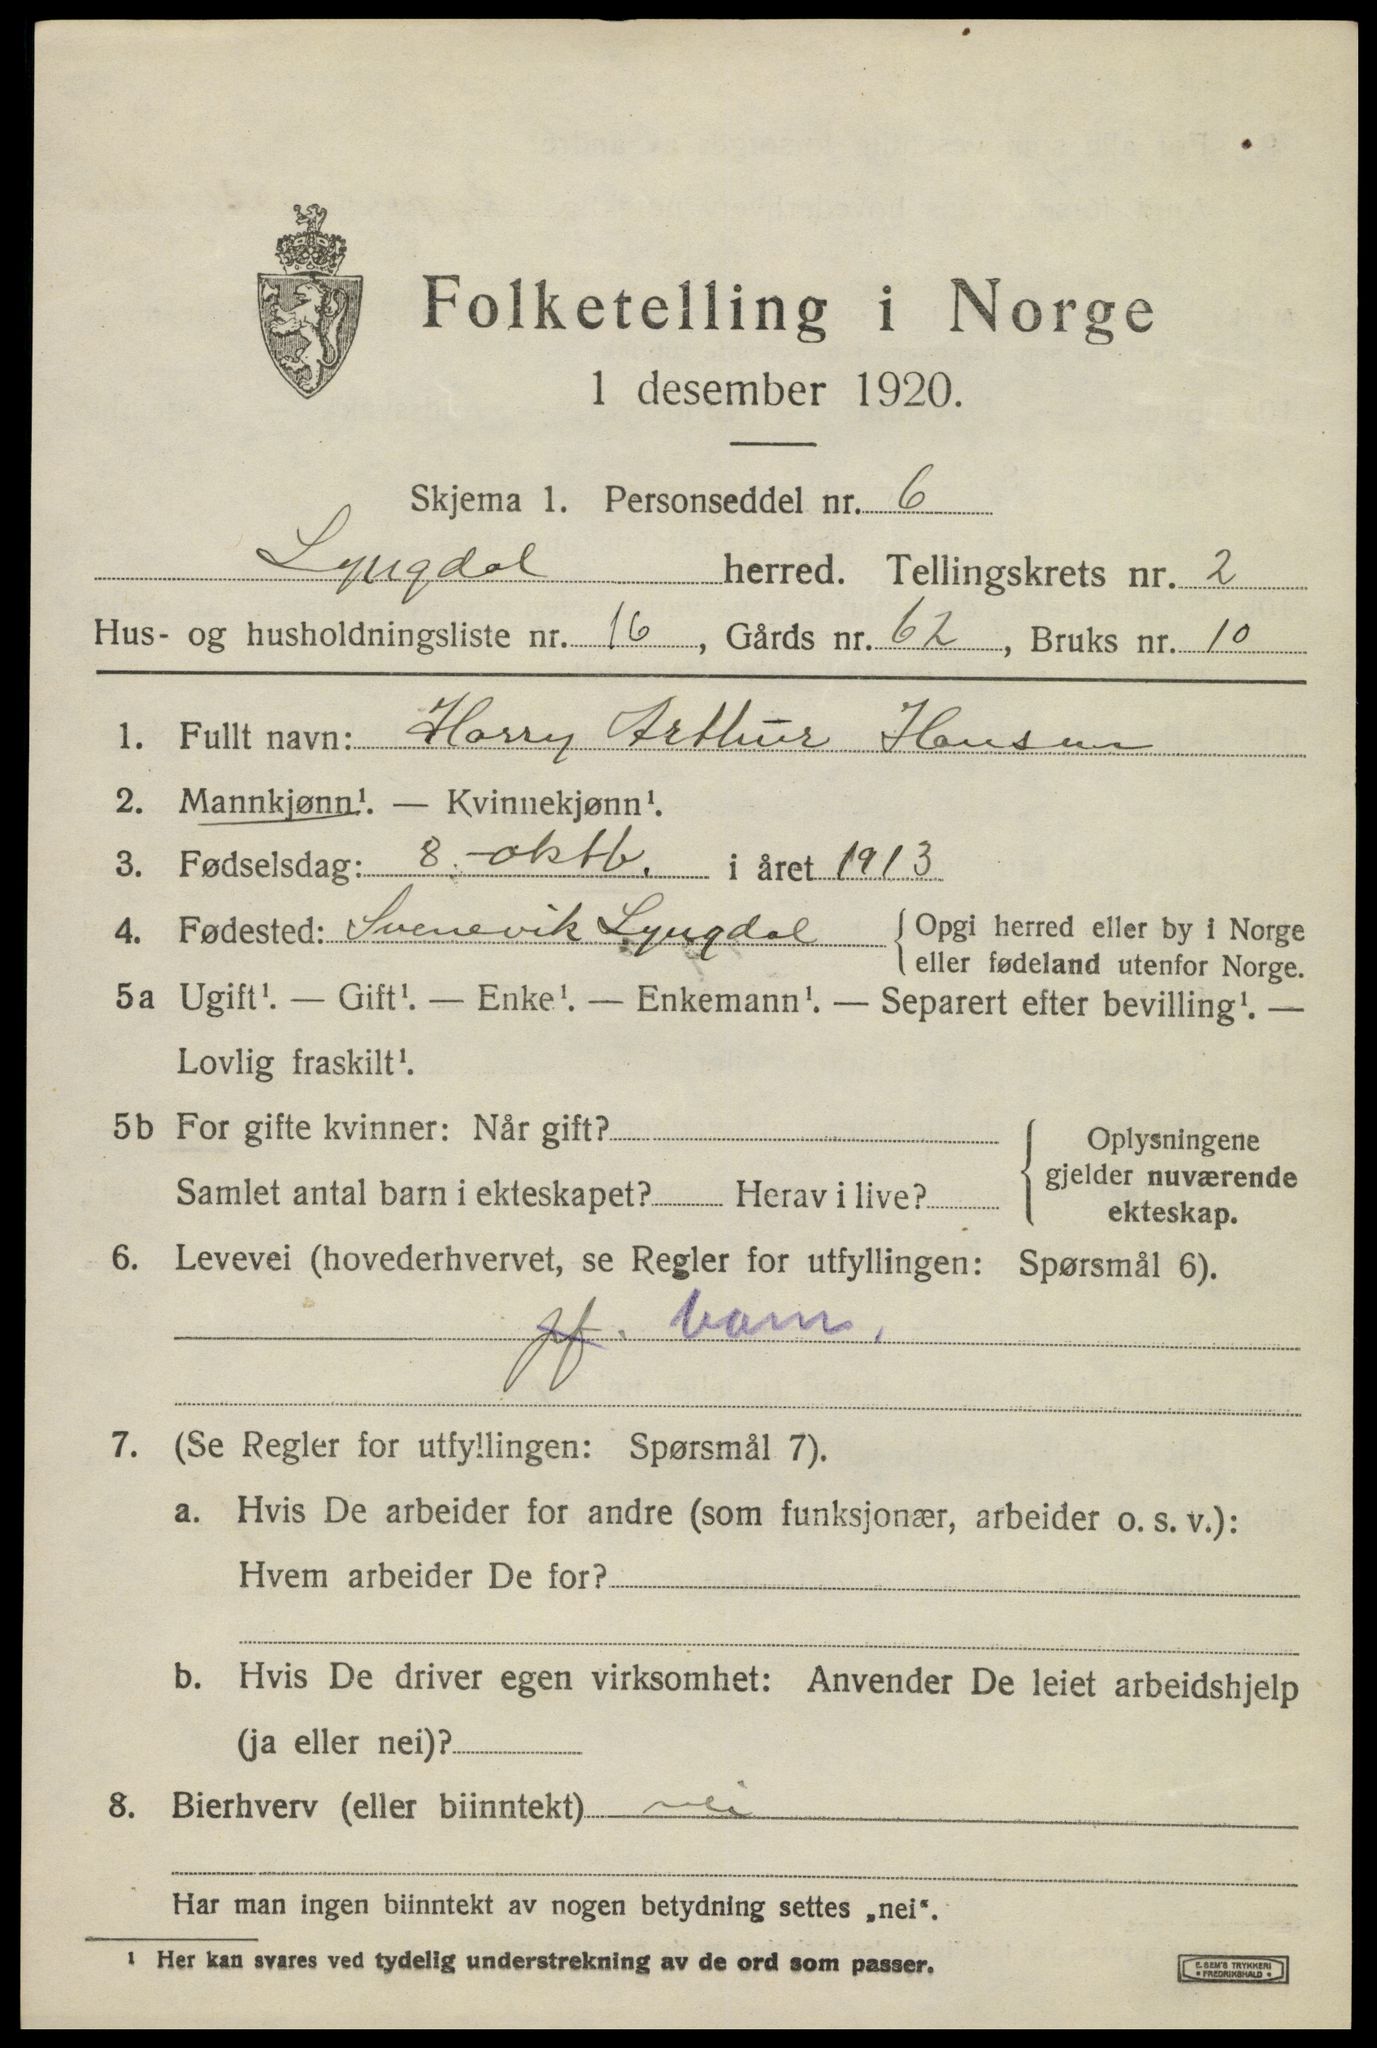 Folketelling i Norge
1 desember 1920.
Skjema 1. Personseddel nr. 6
Lyngdal herred. Tellingskrets nr. 2
Hus- og husholdningsliste nr. 16, Gårds nr. 62, Bruks nr. 10
1. Fullt navn: Harry Arthur Hansen
2. Mannkjønn¹. — Kvinnekjønn¹.
3. Fødselsdag: 8. oktb. i året 1913
4. Fødested: Svenevik Lyngdal { Opgi herred eller by i Norge
eller fødeland utenfor Norge.
5a Ugift¹. — Gift¹. — Enke¹. — Enkemann¹. — Separert efter bevilling¹. —
Lovlig fraskilt¹.
5b For gifte kvinner: Når gift?
Samlet antal barn i ekteskapet? Herav i live?
{ Oplysningene
gjelder nuværende
ekteskap.
6. Levevei (hovederhvervet, se Regler for utfyllingen: Spørsmål 6).
barn.
7. (Se Regler for utfyllingen: Spørsmål 7).
a. Hvis De arbeider for andre (som funksjonær, arbeider o. s. v.):
Hvem arbeider De for?
b. Hvis De driver egen virksomhet: Anvender De leiet arbeidshjelp
(ja eller nei)?
8. Bierhverv (eller biinntekt) nei
Har man ingen biinntekt av nogen betydning settes „nei“.
¹ Her kan svares ved tydelig understrekning av de ord som passer.
E. SEM'S TRYKKERI
• FREDRIKSHALD •